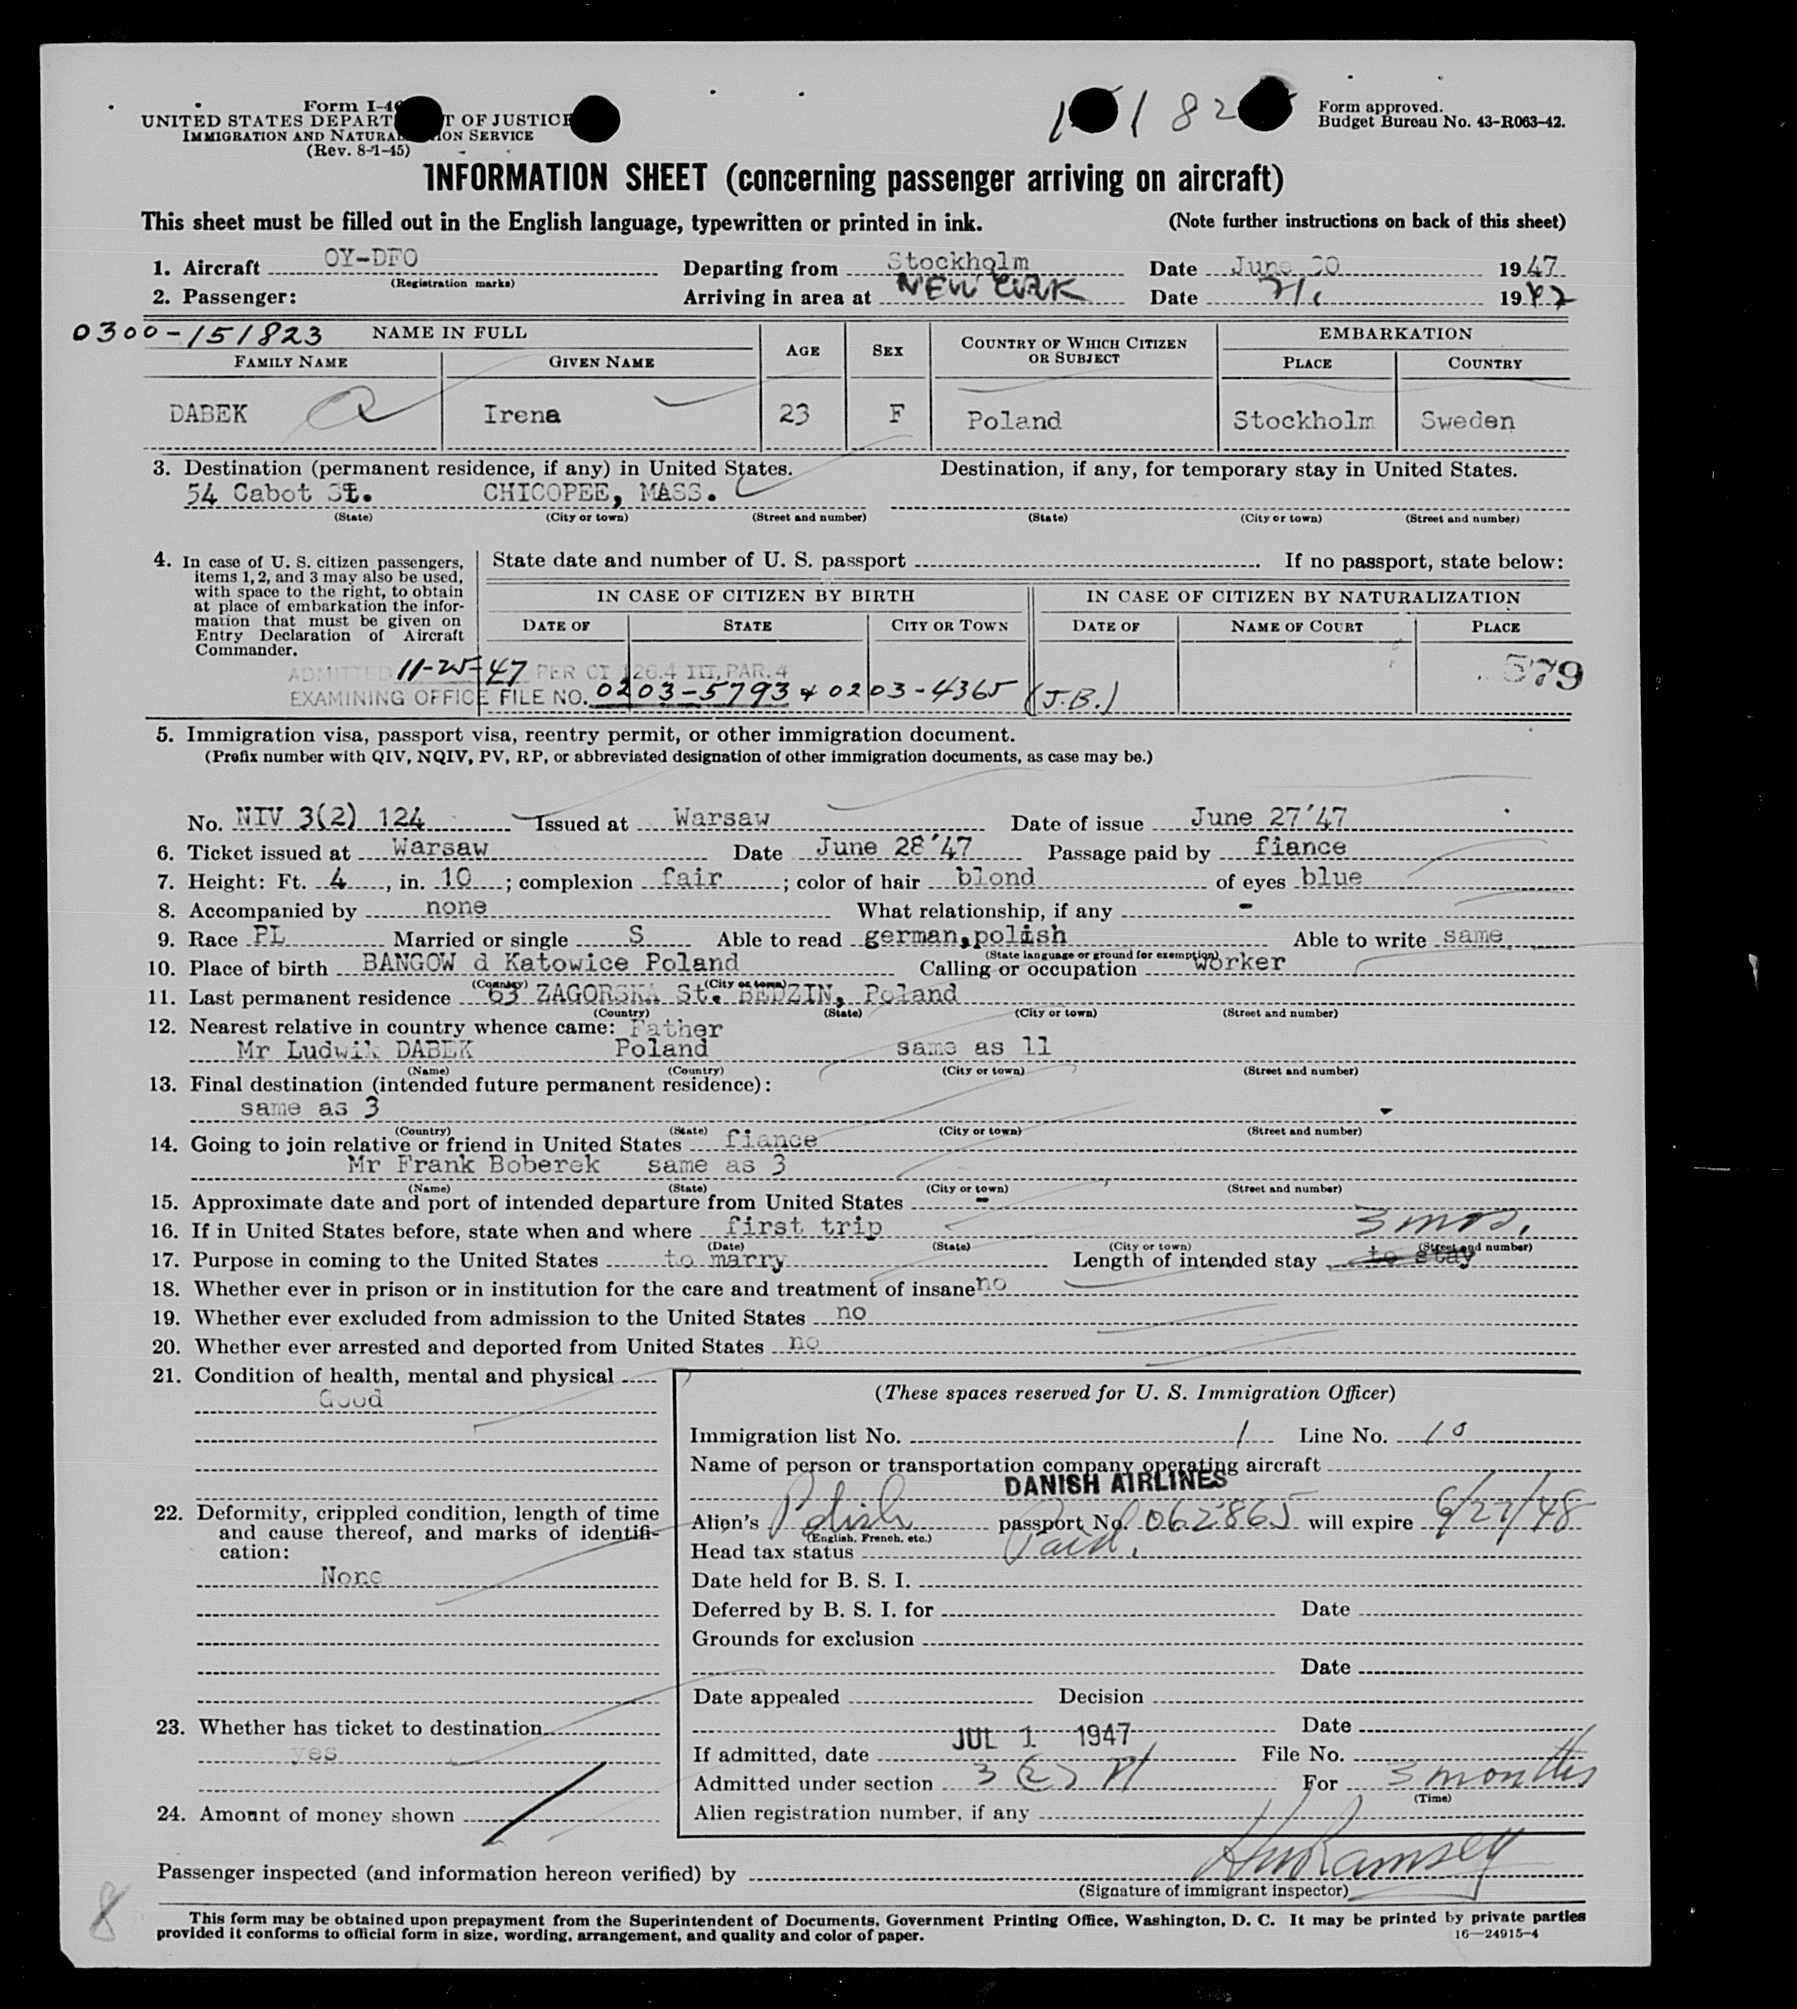 Form I-4
UNITED STATES DEPART T OF JUSTICE
IMMIGRATION AND NATURAL ION SERVICE
(Rev. 8-1-45)
Form approved.
Budget Bureau No. 43-R063-42.
INFORMATION SHEET (concerning passenger arriving on aircraft)
This sheet must be filled out in the English language, typewritten or printed in ink. (Note further instructions on back of this sheet)
1. Aircraft OY-DFO Departing from Stockholm Date June 30 1947
(Registration marks)
2. Passenger: Arriving in area at NEW YORK Date 7/1 1947
0300-151823 NAME IN FULL AGE SEX COUNTRY OF WHICH CITIZEN OR SUBJECT EMBARKATION
FAMILY NAME GIVEN NAME PLACE COUNTRY
DABEK Irena 23 F Poland Stockholm Sweden
3. Destination (permanent residence, if any) in United States. Destination, if any, for temporary stay in United States.
54 Cabot St. CHICOPEE, MASS.
(State) (City or town) (Street and number) (State) (City or town) (Street and number)
4. In case of U. S. citizen passengers, items 1, 2, and 3 may also be used, with space to the right, to obtain at place of embarkation the information that must be given on Entry Declaration of Aircraft Commander.
State date and number of U. S. passport If no passport, state below:
IN CASE OF CITIZEN BY BIRTH IN CASE OF CITIZEN BY NATURALIZATION
DATE OF STATE CITY OR TOWN DATE OF NAME OF COURT PLACE
ADMITTED 11-25-47 PER CI 126.4 III, PAR. 4 579
EXAMINING OFFICE FILE NO. 0203-5793 + 0203-4365 (J.B.)
5. Immigration visa, passport visa, reentry permit, or other immigration document.
(Prefix number with QIV, NQIV, PV, RP, or abbreviated designation of other immigration documents, as case may be.)
No. NIV 3(2) 124 Issued at Warsaw Date of issue June 27'47
6. Ticket issued at Warsaw Date June 28'47 Passage paid by fiance
7. Height: Ft. 4, in. 10; complexion fair; color of hair blond of eyes blue
8. Accompanied by none What relationship, if any -
9. Race PL Married or single S Able to read german,polish Able to write same
(State language or ground for exemption)
10. Place of birth BANGOW d Katowice Poland Calling or occupation worker
(Country) (City or town)
11. Last permanent residence 63 ZAGORSKA St. BEDZIN, Poland
(Country) (State) (City or town) (Street and number)
12. Nearest relative in country whence came: Father
Mr Ludwik DABEK Poland same as 11
(Name) (Country) (City or town) (Street and number)
13. Final destination (intended future permanent residence):
same as 3 -
(Country) (State) (City or town) (Street and number)
14. Going to join relative or friend in United States fiance
Mr Frank Boberek same as 3
(Name) (State) (City or town) (Street and number)
15. Approximate date and port of intended departure from United States -
16. If in United States before, state when and where first trip 3 mos.
(Date) (State) (City or town) (Street and number)
17. Purpose in coming to the United States to marry Length of intended stay to stay
18. Whether ever in prison or in institution for the care and treatment of insane no
19. Whether ever excluded from admission to the United States no
20. Whether ever arrested and deported from United States no
21. Condition of health, mental and physical
Good
(These spaces reserved for U. S. Immigration Officer)
Immigration list No. 1 Line No. 10
Name of person or transportation company operating aircraft
DANISH AIRLINES
22. Deformity, crippled condition, length of time and cause thereof, and marks of identification:
None
Alien's Polish passport No. 062865 will expire 6/27/48
(English, French, etc.)
Head tax status Paid.
Date held for B. S. I.
Deferred by B. S. I. for Date
Grounds for exclusion
Date
Date appealed Decision
23. Whether has ticket to destination
yes
Date
If admitted, date JUL 1 1947 File No.
Admitted under section 3 (2) For 3 months
(Time)
24. Amount of money shown
Alien registration number, if any
Passenger inspected (and information hereon verified) by Ramsey
(Signature of immigrant inspector)
8
This form may be obtained upon prepayment from the Superintendent of Documents, Government Printing Office, Washington, D. C. It may be printed by private parties
provided it conforms to official form in size, wording, arrangement, and quality and color of paper. 16—24915-4